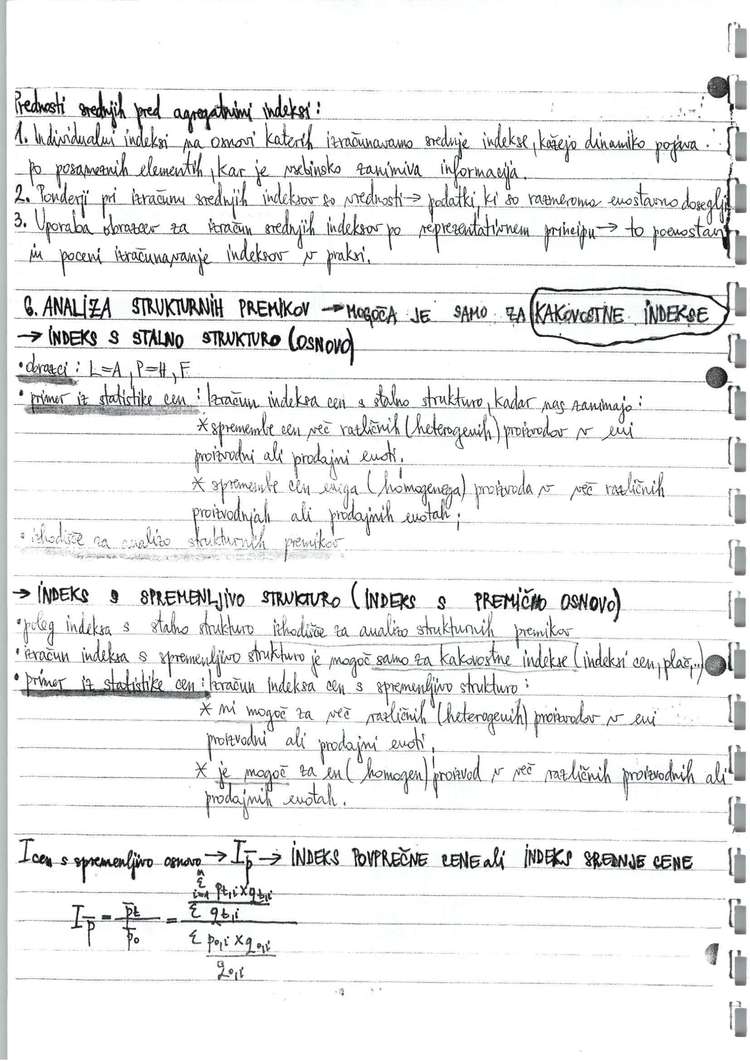 Prednosti srednjih pred agregatnimi indeksi:
1. Individualni indeksi na osnovi katerih izračunavamo srednje indekse, kažejo dinamiko pojava
po posameznih elementih, kar je vsebinsko zanimiva informacija.
2. Ponderji pri izračunu srednjih indeksov so vrednosti → podatki, ki so razmeroma enostavno dosegljivi
3. Uporaba obrazcev za izračun srednjih indeksov po reprezentativnem principu → to poenostavi
in poceni izračunavanje indeksov v praksi.
6. ANALIZA STRUKTURNIH PREMIKOV → MOGOČA JE SAMO ZA KAKOVOSTNE INDEKSE
→ INDEKS S STALNO STRUKTURO (OSNOVO)
• obrazci: L=A, P=H, F
• primer iz statistike cen: Izračun indeksa cen s stalno strukturo, kadar nas zanimajo:
* spremembe cen več različnih (heterogenih) proizvodov v eni
proizvodni ali prodajni enoti.
* spremembe cen enega (homogenega) proizvoda v več različnih
proizvodnjah ali prodajnih enotah;
• izhodišče za analizo strukturnih premikov
→ INDEKS S SPREMENLJIVO STRUKTURO (INDEKS S PREMIČNO OSNOVO)
• poleg indeksa s stalno strukturo izhodišče za analizo strukturnih premikov
• izračun indeksa s spremenljivo strukturo je mogoč samo za kakovostne indekse (indeksi cen, plač,..)
• primer iz statistike cen: Izračun indeksa cen s spremenljivo strukturo:
* ni mogoč za več različnih (heterogenih) proizvodov v eni
proizvodni ali prodajni enoti,
* je mogoč za en (homogen) proizvod v več različnih proizvodnih ali
prodajnih enotah.
I cen s spremenljivo osnovo → I p̄ → INDEKS POVPREČNE CENE ali INDEKS SREDNJE CENE
n
Σ pt,i × qt,i
i=1
I p̄ = p̄t / p̄o = Σ qt,i
Σ po,i × qo,i
qo,i